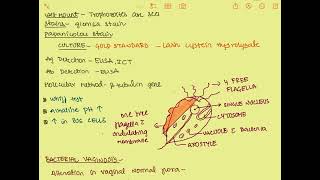 WET MOUNT - Trophozoites are seen
Stains - giemsa stain
Papanicolau stain
CULTURE - GOLD STANDARD - Lash cystein hydrolysate
Ag Detection - ELISA, ICT
Ab Detection - ELISA
Molecular method - β tubulin gene
Whiff test
Alkaline pH ↑
↑ in PUS CELLS
4 FREE FLAGELLA
SINGLE NUCLEUS
CYTOSOME
VACUOLE & Bacteria
AXOSTYLE
ONE free flagella & undulating membrane
BACTERIAL VAGINOSIS -
Alteration in vaginal normal flora -